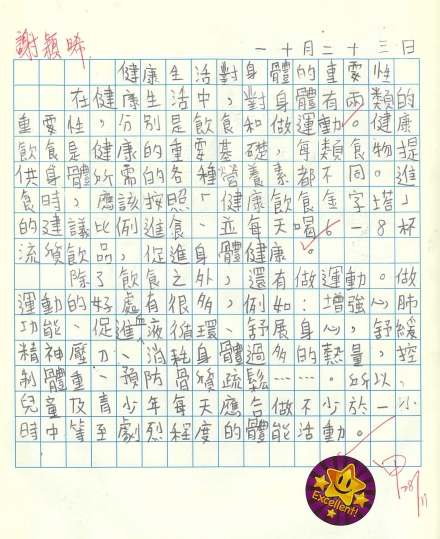 謝穎晞
一十月二十三日
健康生活對身體的重要性
在健康生活中，對身體有兩類的
重要性，分別是飲食和做運動。健康
飲食是健康的重要基礎，每類食物提
供身體所需的各種營養素都不同。進
食時，應該按照「健康飲食金字塔」
的建議比例進食、並每天喝6－8杯
流質飲品，促進身體健康。
除了飲食之外，還有做運動。做
運動的好處有很多，例如：增強心肺
功能、促進血液循環、舒展身心，舒緩
精神壓力、消耗身體過多的熱量，控
制體重、預防骨質疏鬆……。所以，
兒童及青少年每天應合做不少於一小
時中等至劇烈程度的體能活動。
Excellent!
28/11